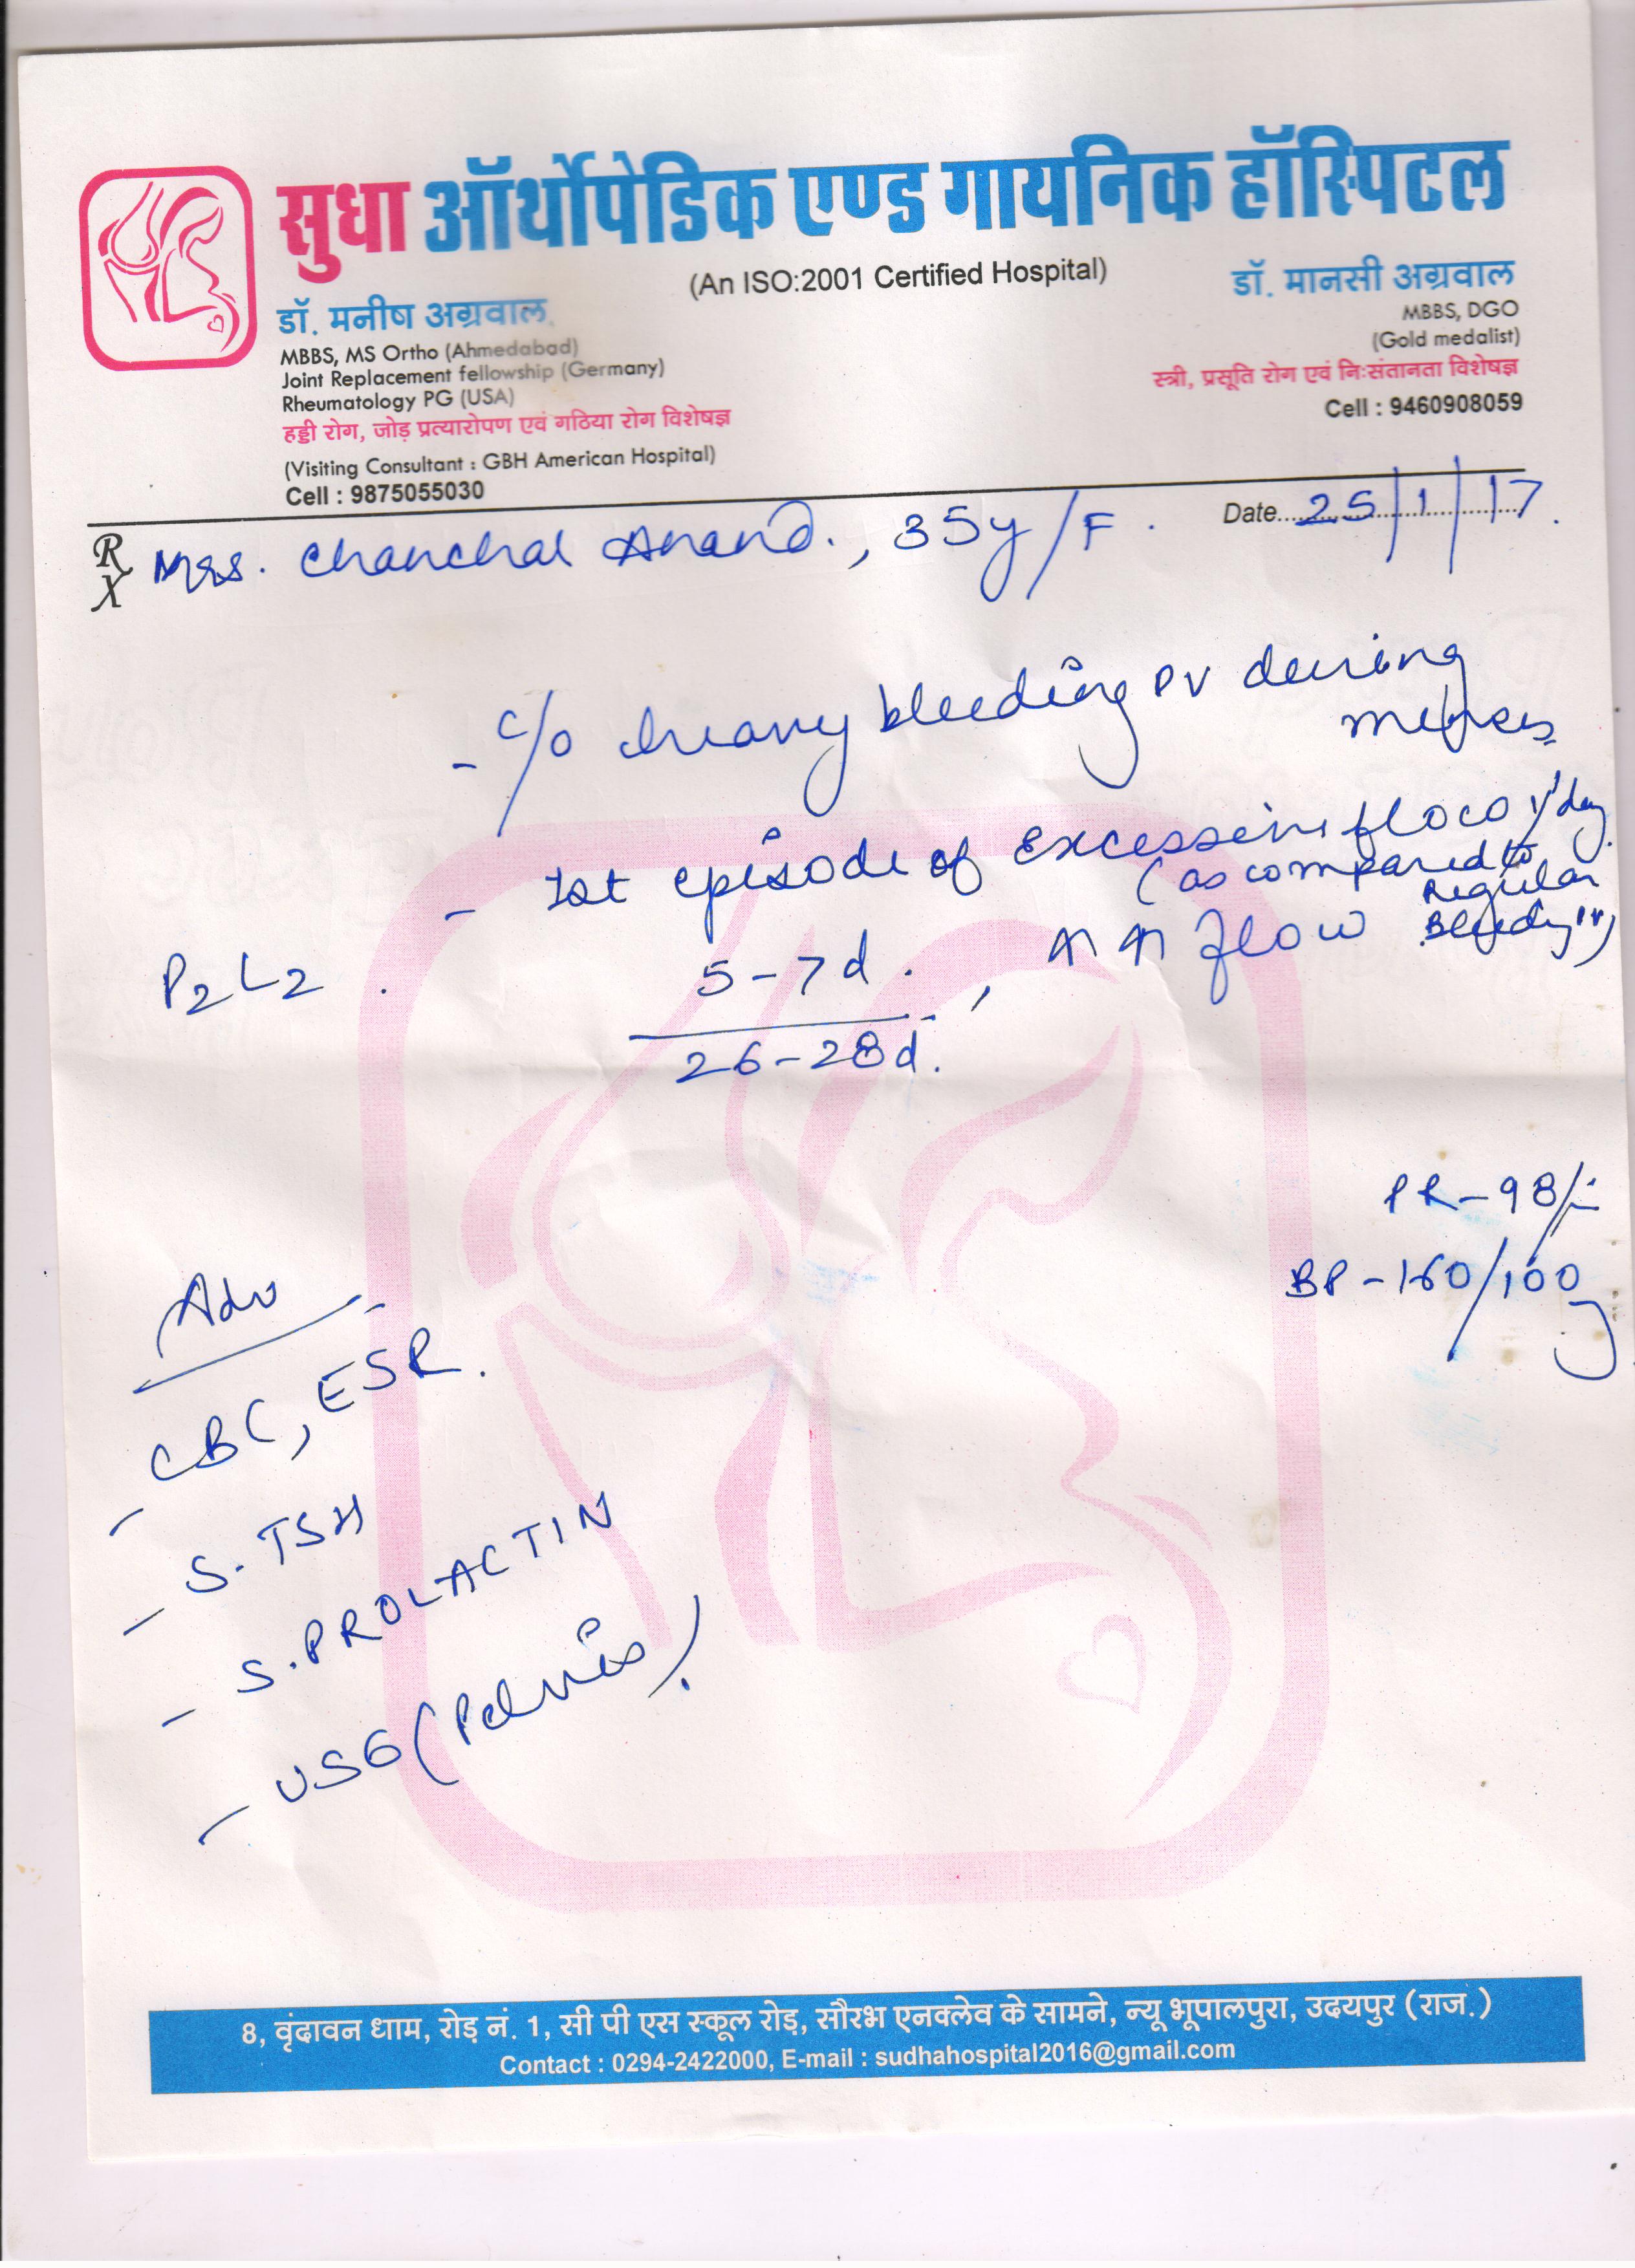 सुधा ऑर्थोपेडिक एण्ड गायनिक हॉस्पिटल
(An ISO:2001 Certified Hospital)
डॉ. मनीष अग्रवाल
MBBS, MS Ortho (Ahmedabad)
Joint Replacement fellowship (Germany)
Rheumatology PG (USA)
हड्डी रोग, जोड़ प्रत्यारोपण एवं गठिया रोग विशेषज्ञ
(Visiting Consultant : GBH American Hospital)
Cell : 9875055030
डॉ. मानसी अग्रवाल
MBBS, DGO
(Gold medalist)
स्त्री, प्रसूति रोग एवं निःसंतानता विशेषज्ञ
Cell : 9460908059
Date 25/1/17.
Rx Mrs. Chanchal Anand., 35y/F.
- c/o heavy bleeding PV during
menses
- 1st episode of Excessive flow
(as compared to
Regular
Bleeding PV)
P2L2. 5-7d. , ↑↑ flow
26-28d.
PR-98/-
BP-160/100
Adv
- CBC, ESR.
- S. TSH
- S. PROLACTIN
- USG (Pelvis).
8, वृंदावन धाम, रोड़ नं. 1, सी पी एस स्कूल रोड़, सौरभ एनक्लेव के सामने, न्यू भूपालपुरा, उदयपुर (राज.)
Contact : 0294-2422000, E-mail : sudhahospital2016@gmail.com